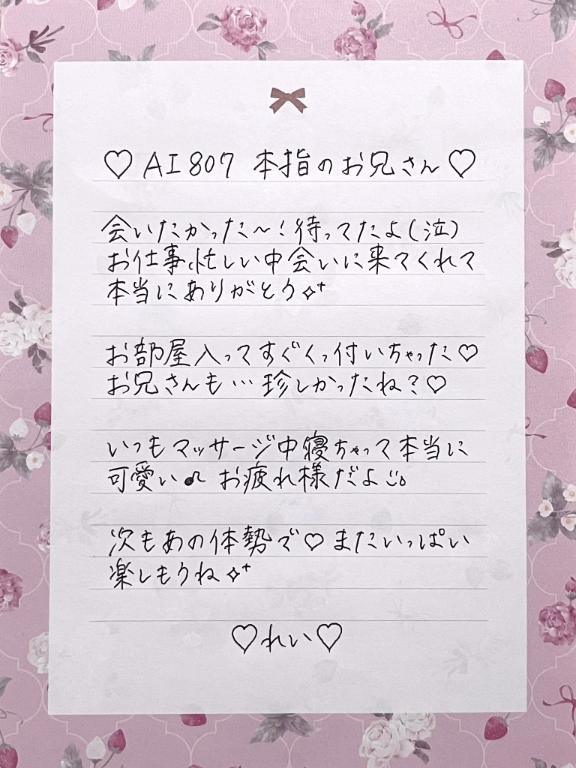 ♡ AI807 本指のお兄さん ♡
会いたかった〜！待ってたよ(泣)
お仕事忙しい中会いに来てくれて
本当にありがとう✧⁺
お部屋入ってすぐくっ付いちゃった♡
お兄さんも…珍しかったね？♡
いつもマッサージ中寝ちゃって本当に
可愛い♫ お疲れ様だよ
次もあの体勢で♡またいっぱい
楽しもうね✧⁺
♡れい♡